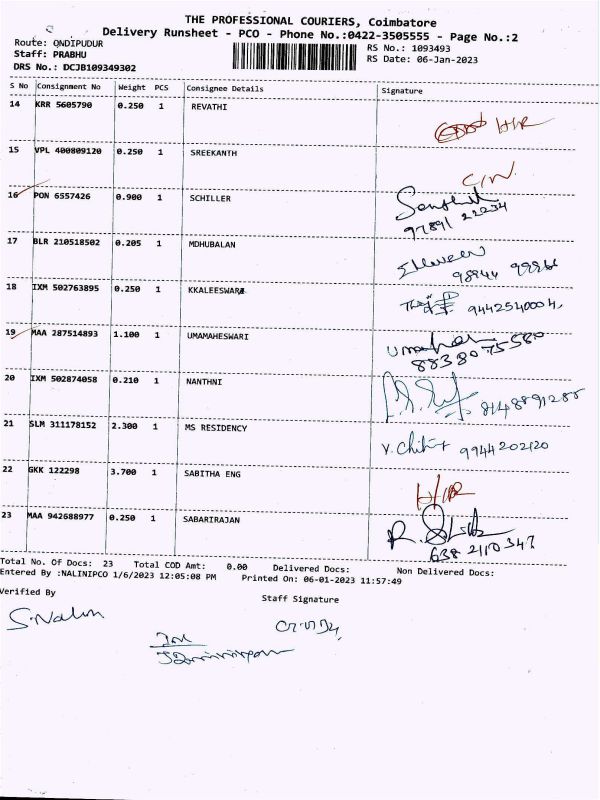 THE PROFESSIONAL COURIERS, Coimbatore
Delivery Runsheet - PCO - Phone No.:0422-3505555 - Page No.:2
Route: ONDIPUDUR
RS No.: 1093493
Staff: PRABHU
RS Date: 06-Jan-2023
DRS No.: DCJB109349302
S No Consignment No Weight PCS Consignee Details Signature
14 KRR 5605790 0.250 1 REVATHI H/R
15 VPL 400809120 0.250 1 SREEKANTH C/N.
16 PON 6557426 0.900 1 SCHILLER
97891 22234
17 BLR 210518502 0.205 1 MDHUBALAN
98944 99966
18 IXM 502763895 0.250 1 KKALEESWARE 9442540004,
19 MAA 287514893 1.100 1 UMAMAHESWARI
8838075580
20 IXM 502874058 0.210 1 NANTHNI 8148891288
21 SLM 311178152 2.300 1 MS RESIDENCY 9944202120
22 GKK 122298 3.700 1 SABITHA ENG H/R
23 MAA 942688977 0.250 1 SABARIRAJAN
638 2110 347
Total No. Of Docs: 23 Total COD Amt: 0.00 Delivered Docs: Non Delivered Docs:
Entered By :NALINIPCO 1/6/2023 12:05:08 PM Printed On: 06-01-2023 11:57:49
Verified By
Staff Signature
S.Nalini